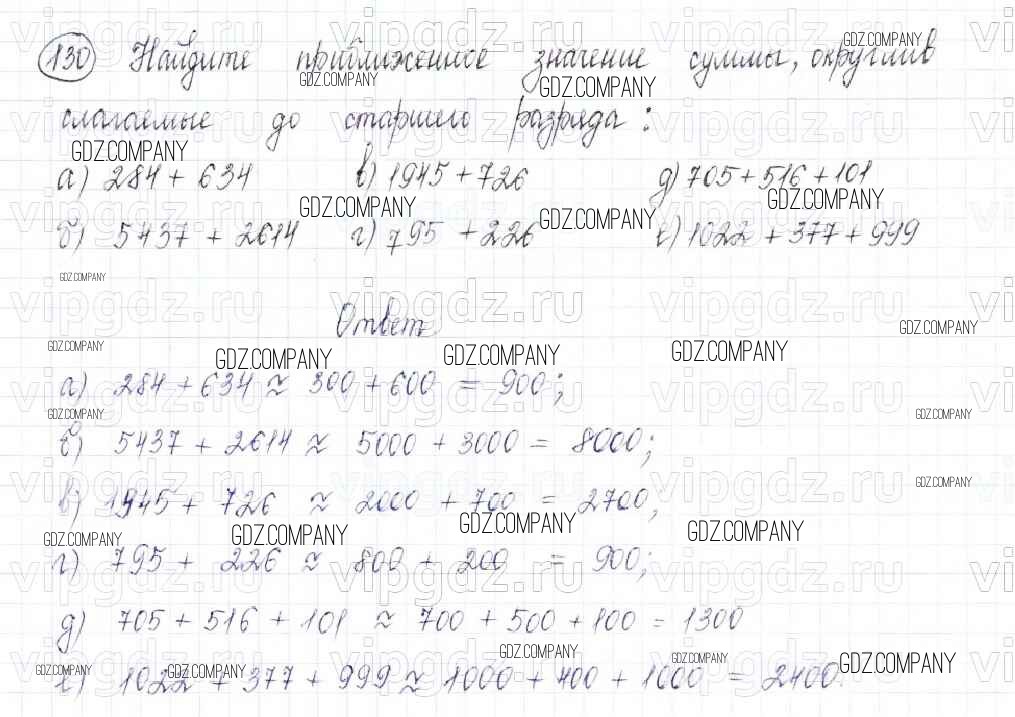 130 Найдите приближенное значение суммы, округлив
слагаемые до старшего разряда:
а) 284 + 634 в) 1945 + 726 д) 705 + 516 + 101
б) 5437 + 2614 г) 795 + 226 е) 1022 + 377 + 999
Ответ
а) 284 + 634 ≈ 300 + 600 = 900;
б) 5437 + 2614 ≈ 5000 + 3000 = 8000;
в) 1945 + 726 ≈ 2000 + 700 = 2700;
г) 795 + 226 ≈ 800 + 200 = 900;
д) 705 + 516 + 101 ≈ 700 + 500 + 100 = 1300
е) 1022 + 377 + 999 ≈ 1000 + 400 + 1000 = 2400.
vipgdz.ru
GDZ.COMPANY